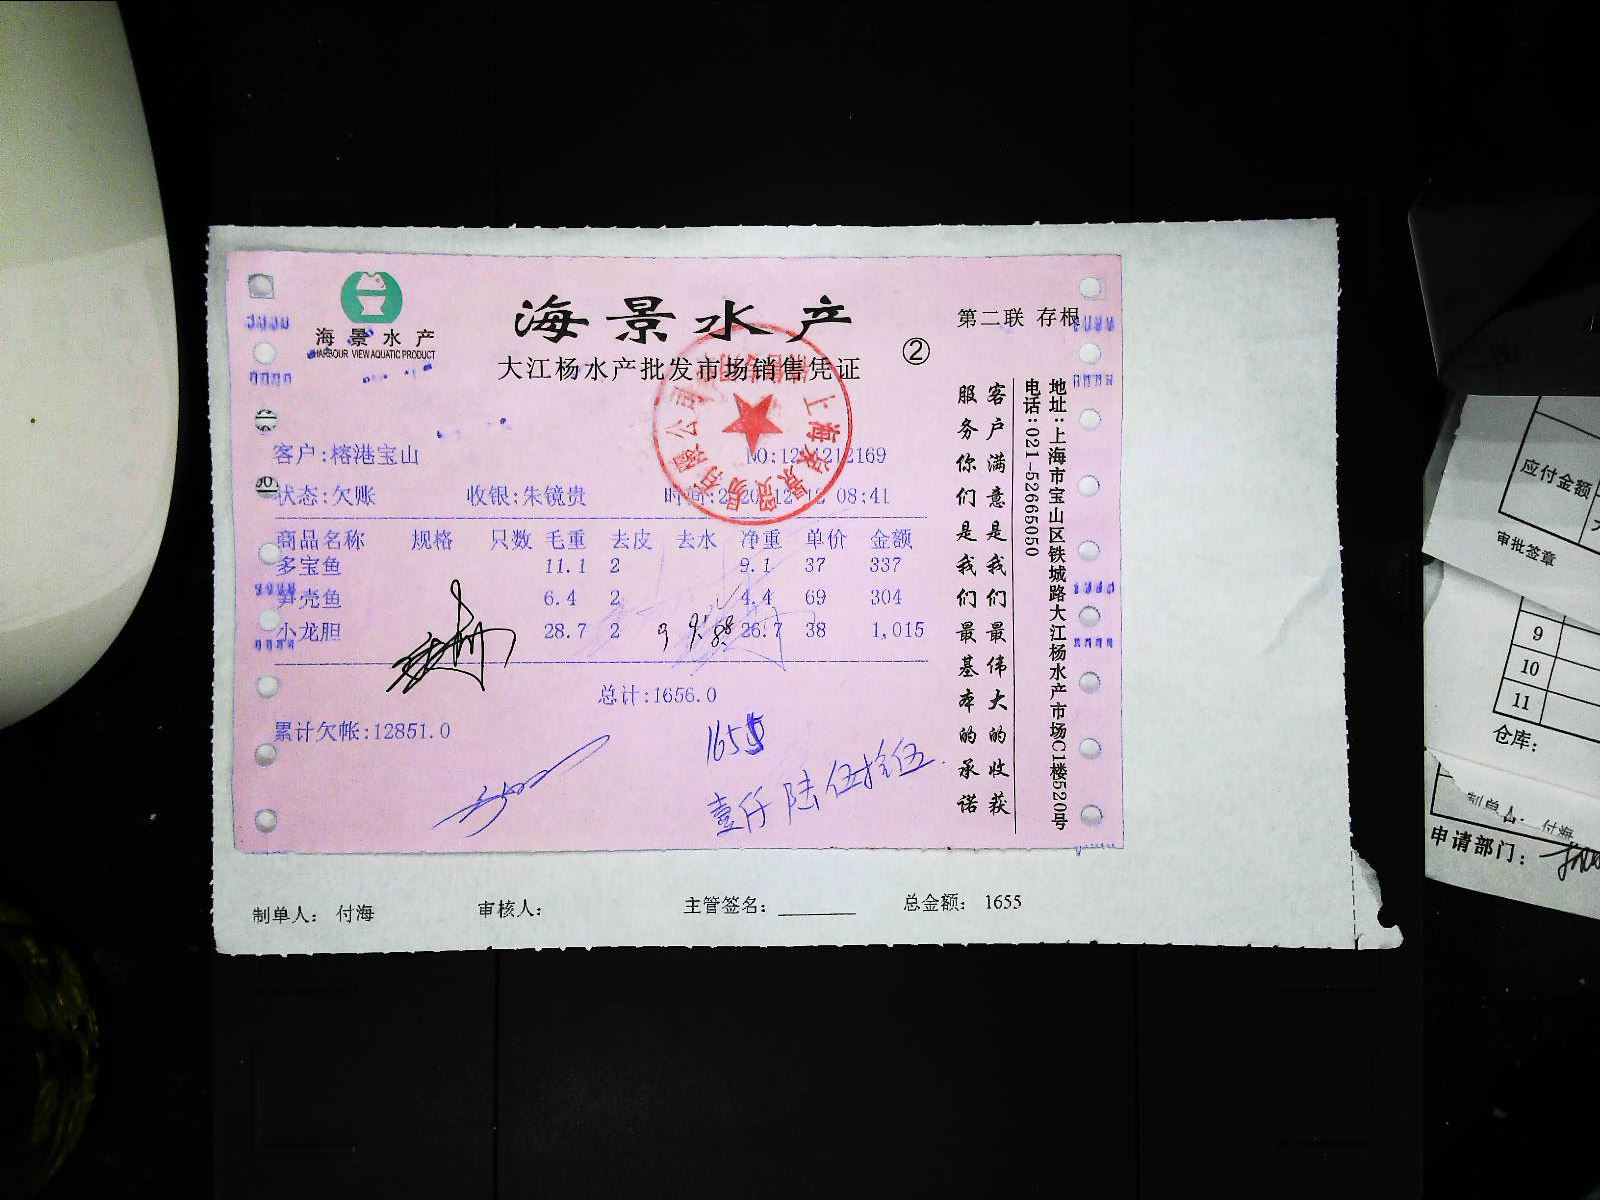 海景水产
HARBOUR VIEW AQUATIC PRODUCT
海景水产
大江杨水产批发市场销售凭证
②
第二联 存根
客户:榕港宝山
状态:欠账 收银:朱镜贵 08:41
商品名称 规格 只数 毛重 去皮 去水 净重 单价 金额
多宝鱼 11.1 2 9.1 37 337
笋壳鱼 6.4 2 4.4 69 304
小龙胆 28.7 2 26.7 38 1,015
总计:1656.0
累计欠帐:12851.0
1655
壹仟陆伍拾伍
客户满意是我们最伟大的收获
服务你们是我们最基本的承诺
地址:上海市宝山区铁城路大江杨水产市场C1楼520号
电话:021-52665050
制单人: 付海 审核人: 主管签名: 总金额: 1655
应付金额
审批签章
9
10
11
仓库:
制单人: 付海
申请部门: